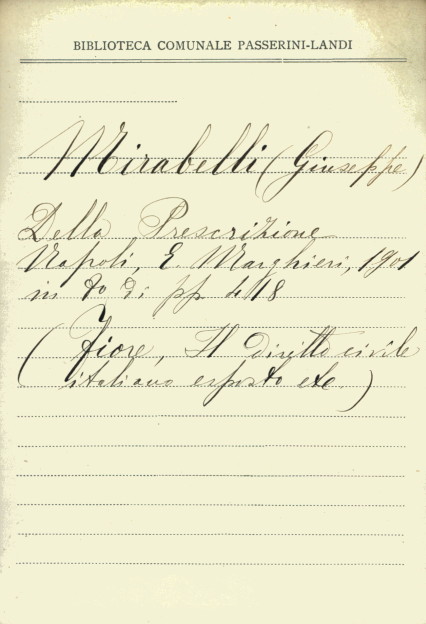 BIBLIOTECA COMUNALE PASSERINI-LANDI
Mirabelli (Giuseppe)
Della Prescrizione
Napoli, E. Marghieri, 1901
in 8o di pp 418
(Fiore, Il diritto civile
italiano esposto etc.)